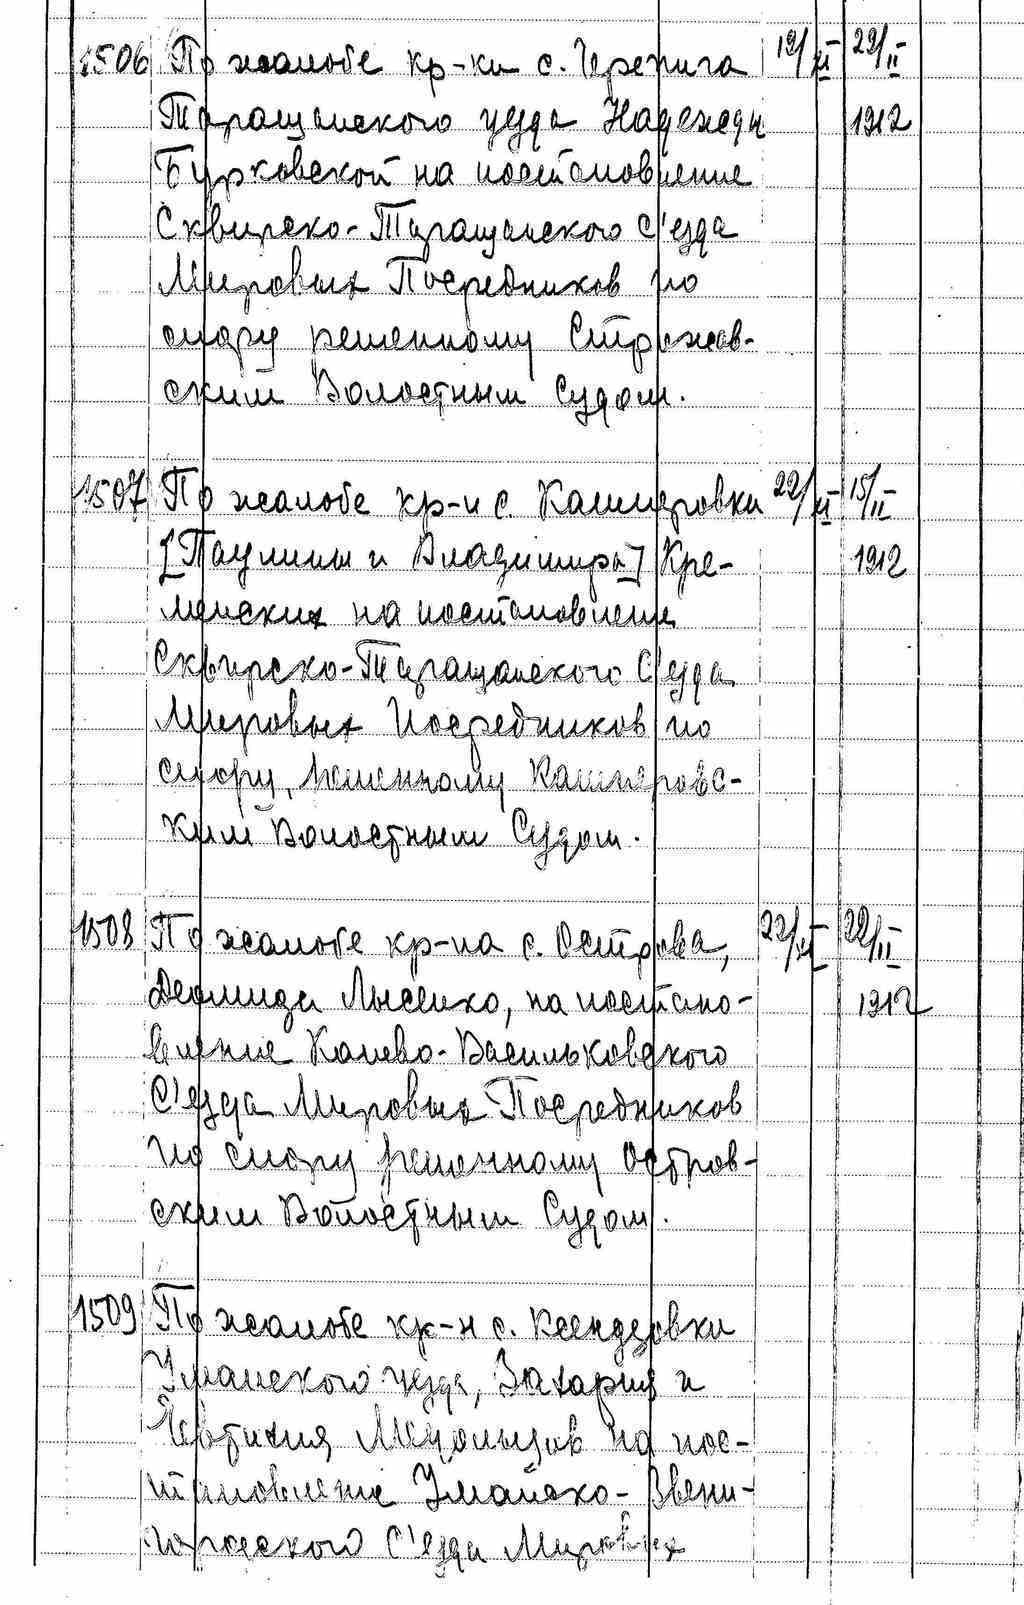 1506 По жалобе кр-ки с. Черепина 19/XI 29/II
Таращанского уезда Надежды 1912
Бурковской на постановление
Сквирско-Таращанского С'езда
Мировых Посредников по
спору решенному Стрижав-
ским Волостным Судом.
1507 По жалобе кр-н с. Кашперовки 22/XI 15/II
[Паулины и Владимира] Кре- 1912
менских на постановление
Сквирско-Таращанского С'езда
Мировых Посредников по
спору, решенному Кашперовс-
ким Волостным Судом.
1508 По жалобе кр-на с. Острова, 22/XI 29/II
Деомида Лысенко, на постано- 1912
вление Канево-Васильковского
С'езда Мировых Посредников
по спору решенному Остров-
ским Волостным Судом.
1509 По жалобе кр-н с. Ксендзовки
Уманского уезда, Захария и
на пос-
тановление Уманско-Звени-
городского С'езда Мировых